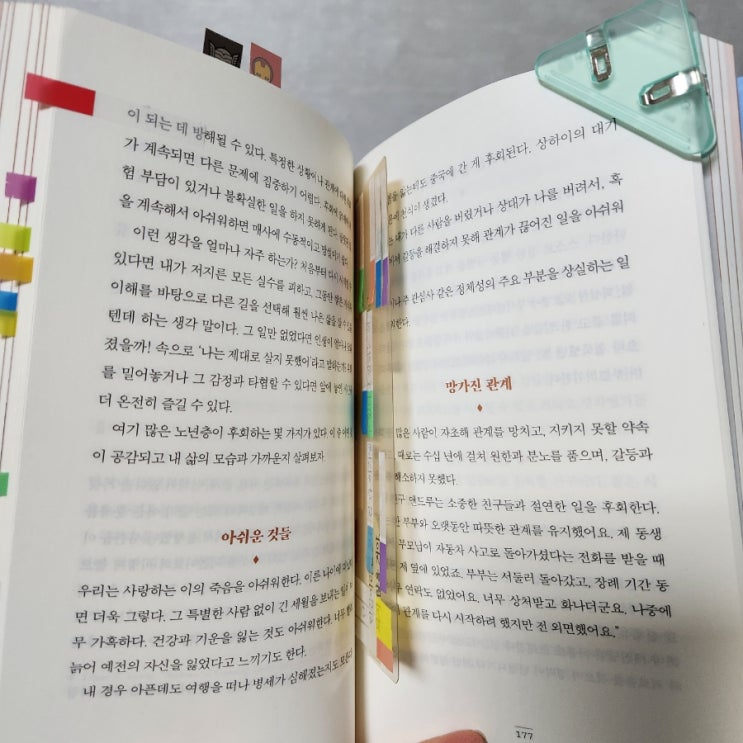 이 되는 데 방해될 수 있다. 특정한 상황이나 관계에
가 계속되면 다른 문제에 집중하기 어렵다. 후회에
험 부담이 있거나 불확실한 일을 하지 못하게
을 계속해서 아쉬워하면 매사에 수동적이고
이런 생각을 얼마나 자주 하는가? 처음부터 다시
있다면 내가 저지른 모든 실수를 피하고, 그동안
이해를 바탕으로 다른 길을 선택해 훨씬 나은 삶을 살 수
텐데 하는 생각 말이다. 그 일만 없었다면 인생이
졌을까! 속으로 ‘나는 제대로 살지 못했어’라고
를 밀어놓거나 그 감정과 타협할 수 있다면 앞에
더 온전히 즐길 수 있다.
여기 많은 노년층이 후회하는 몇 가지가 있다. 이 중
이 공감되고 내 삶의 모습과 가까운지 살펴보자
아쉬운 것들
우리는 사랑하는 이의 죽음을 아쉬워한다. 이른 나이에
면 더욱 그렇다. 그 특별한 사람 없이 긴 세월을 보내는
무 가혹하다. 건강과 기운을 잃는 것도 아쉬워한다. 너무
늙어 예전의 자신을 잃었다고 느끼기도 한다.
내 경우 아픈데도 여행을 떠나 병세가 심해졌는지도
잃는데도 중국에 간 게 후회된다. 상하이의 대기
천식이 생겼다.
내가 다른 사람을 버렸거나 상대가 나를 버려서, 혹
갈등을 해결하지 못해 관계가 끊어진 일을 아쉬워
주 관심사 같은 정체성의 주요 부분을 상실하는 일
망가진 관계
많은 사람이 자초해 관계를 망치고, 지키지 못할 약속
때로는 수십 년에 걸쳐 원한과 분노를 품으며, 갈등과
해소하지 못했다.
친구 앤드루는 소중한 친구들과 절연한 일을 후회한다.
한 부부와 오랫동안 따뜻한 관계를 유지했어요. 제 동생
부모님이 자동차 사고로 돌아가셨다는 전화를 받을 때
제 앞에 있었죠. 부부는 서둘러 돌아갔고, 장례 기간 동
연락도 없었어요. 너무 상처받고 화나더군요. 나중에
관계를 다시 시작하려 했지만 전 외면했어요.”
177